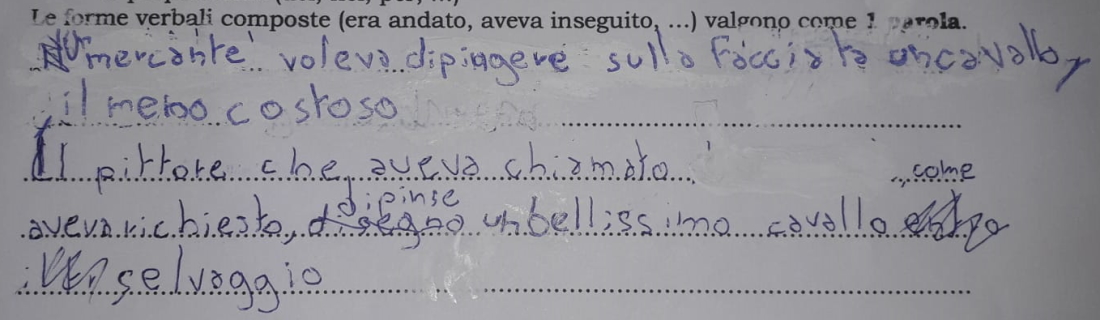 Le forme verbali composte (era andato, aveva inseguito, ...) valgono come 1 parola.
Un mercante voleva dipingere sulla facciata un cavallo,
il meno costoso
Il pittore che aveva chiamato, come
dipinse
aveva richiesto, disegno un bellissimo cavallo
selvaggio